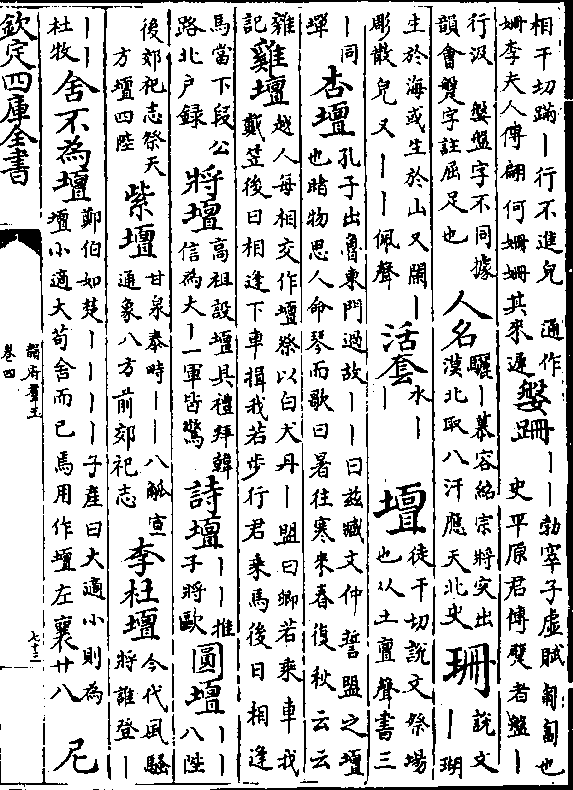 相干切蹣—行不進皃 通作姍李夫人傳翩何姍姍其來遲 媻跚 ——勃窣子虛賦匍匐也史平原君傳躄者盤—
行汲 媻盤字不同據韻會媻字註屈足也 人名 驪—慕容紹宗將突出漠北取八汗應天北史 珊 說文—瑚
生於海或生於山又闌—彫散皃又——佩聲 活套 水—— 壇 徒干切說文祭場也以土亶聲書三
—同墠 杏壇 孔子出魯東門過故——曰茲臧文仲誓盟之壇也睹物思人命琴而歌曰暑往寒來春復秋云云
雜記 雞壇 越人每相交作壇祭以白犬丹—盟曰卿若乘車我戴笠後日相逢下車揖我若步行君乘馬後日相逢
馬當下段公路北户録 將壇 高祖設壇具禮拜韓信為大—一軍皆驚 詩壇 ——推子將歐 圓壇 ——八陛
後郊祀志祭天方壇四陛 紫壇 甘泉泰畤——八觚宣通象八方前郊祀志 李杜壇 今代風騷將誰登—
——杜牧 舍不為壇 鄭伯如楚————子產曰大適小則為壇小適大苟舍而已焉用作壇左襄廿八 尼
欽定四庫全書
韻府羣玉
卷四
七十三